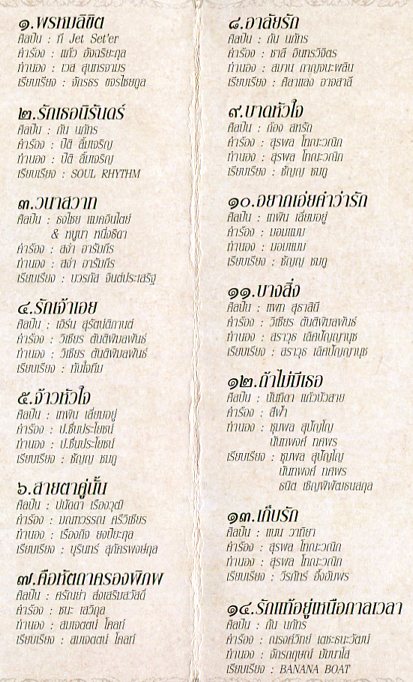 ๑.พรหมลิขิต
ศิลปิน : ที Jet Set'er
คำร้อง : แก้ว อัจฉริยะกุล
ทำนอง : เวส สุนทรจามร
เรียบเรียง : จักรธร ขจรไชยกูล
๒.รักเธอนิรันดร์
ศิลปิน : กัน นภัทร
คำร้อง : ปิติ ลิ้มเจริญ
ทำนอง : ปิติ ลิ้มเจริญ
เรียบเรียง : SOUL RHYTHM
๓.วนาสวาท
ศิลปิน : ธงไชย แมคอินไตย์
& หนูนา หนึ่งธิดา
คำร้อง : สง่า อารัมภีร
ทำนอง : สง่า อารัมภีร
เรียบเรียง : บวรภัส จินต์ประเสริฐ
๔.รักเจ้าเอย
ศิลปิน : เอิร์น สุรัตน์ติกานต์
คำร้อง : วิเชียร ตันติพิมลพันธ์
ทำนอง : วิเชียร ตันติพิมลพันธ์
เรียบเรียง : ทันใจทีม
๕.จ้าวหัวใจ
ศิลปิน : เทพิน เลี่ยมอยู่
คำร้อง : ป.ชื่นประโยชน์
ทำนอง : ป.ชื่นประโยชน์
เรียบเรียง : ธัญญ ชมภู
๖.สายตาคู่นั้น
ศิลปิน : ปนัดดา เรืองวุฒิ
คำร้อง : มณฑวรรณ ศรีวิเชียร
ทำนอง : เรืองกิจ ยงปิยะกุล
เรียบเรียง : บุรินทร์ สุภัครพงษ์กุล
๗.คือหัตถาครองพิภพ
ศิลปิน : ศรัณย่า ส่งเสริมสวัสดิ์
คำร้อง : ชนะ เสวิกุล
ทำนอง : สมเจตน์ โคลท์
เรียบเรียง : สมเจตน์ โคลท์
๘.อาลัยรัก
ศิลปิน : กัน นภัทร
คำร้อง : ชาลี อินทรวิจิตร
ทำนอง : สมาน กาญจนะผลิน
เรียบเรียง : ศิลาแลง อาจสาลี
๙.บาดหัวใจ
ศิลปิน : ก้อง สหรัถ
คำร้อง : สุรพล โทณะวณิก
ทำนอง : สุรพล โทณะวณิก
เรียบเรียง : ธัญญ ชมภู
๑๐.อยากเอ่ยคำว่ารัก
ศิลปิน : เทพิน เลี่ยมอยู่
คำร้อง : มอมแมม
ทำนอง : มอมแมม
เรียบเรียง : ธัญญ ชมภู
๑๑.บางสิ่ง
ศิลปิน : แพท สุธาสินี
คำร้อง : วิเชียร ตันติพิมลพันธ์
ทำนอง : สราวุธ เลิศปัญญานุช
เรียบเรียง : สราวุธ เลิศปัญญานุช
๑๒.ถ้าไม่มีเธอ
ศิลปิน : นันทิดา แก้วบัวสาย
คำร้อง : สีฟ้า
ทำนอง : ชุมพล สุปัญโญ
นันทพงศ์ ทศพร
เรียบเรียง : ชุมพล สุปัญโญ
นันทพงศ์ ทศพร
ธนิต เชิญพิพัฒธนสกุล
๑๓.เก็บรัก
ศิลปิน : แนน วาทิยา
คำร้อง : สุรพล โทณะวณิก
ทำนอง : สุรพล โทณะวณิก
เรียบเรียง : วีรภัทร์ อึ้งอัมพร
๑๔.รักแท้อยู่เหนือกาลเวลา
ศิลปิน : กัน นภัทร
คำร้อง : ณรงค์วิทย์ เตชะธนะวัฒน์
ทำนอง : จักรกฤษณ์ มัฆนาโส
เรียบเรียง : BANANA BOAT